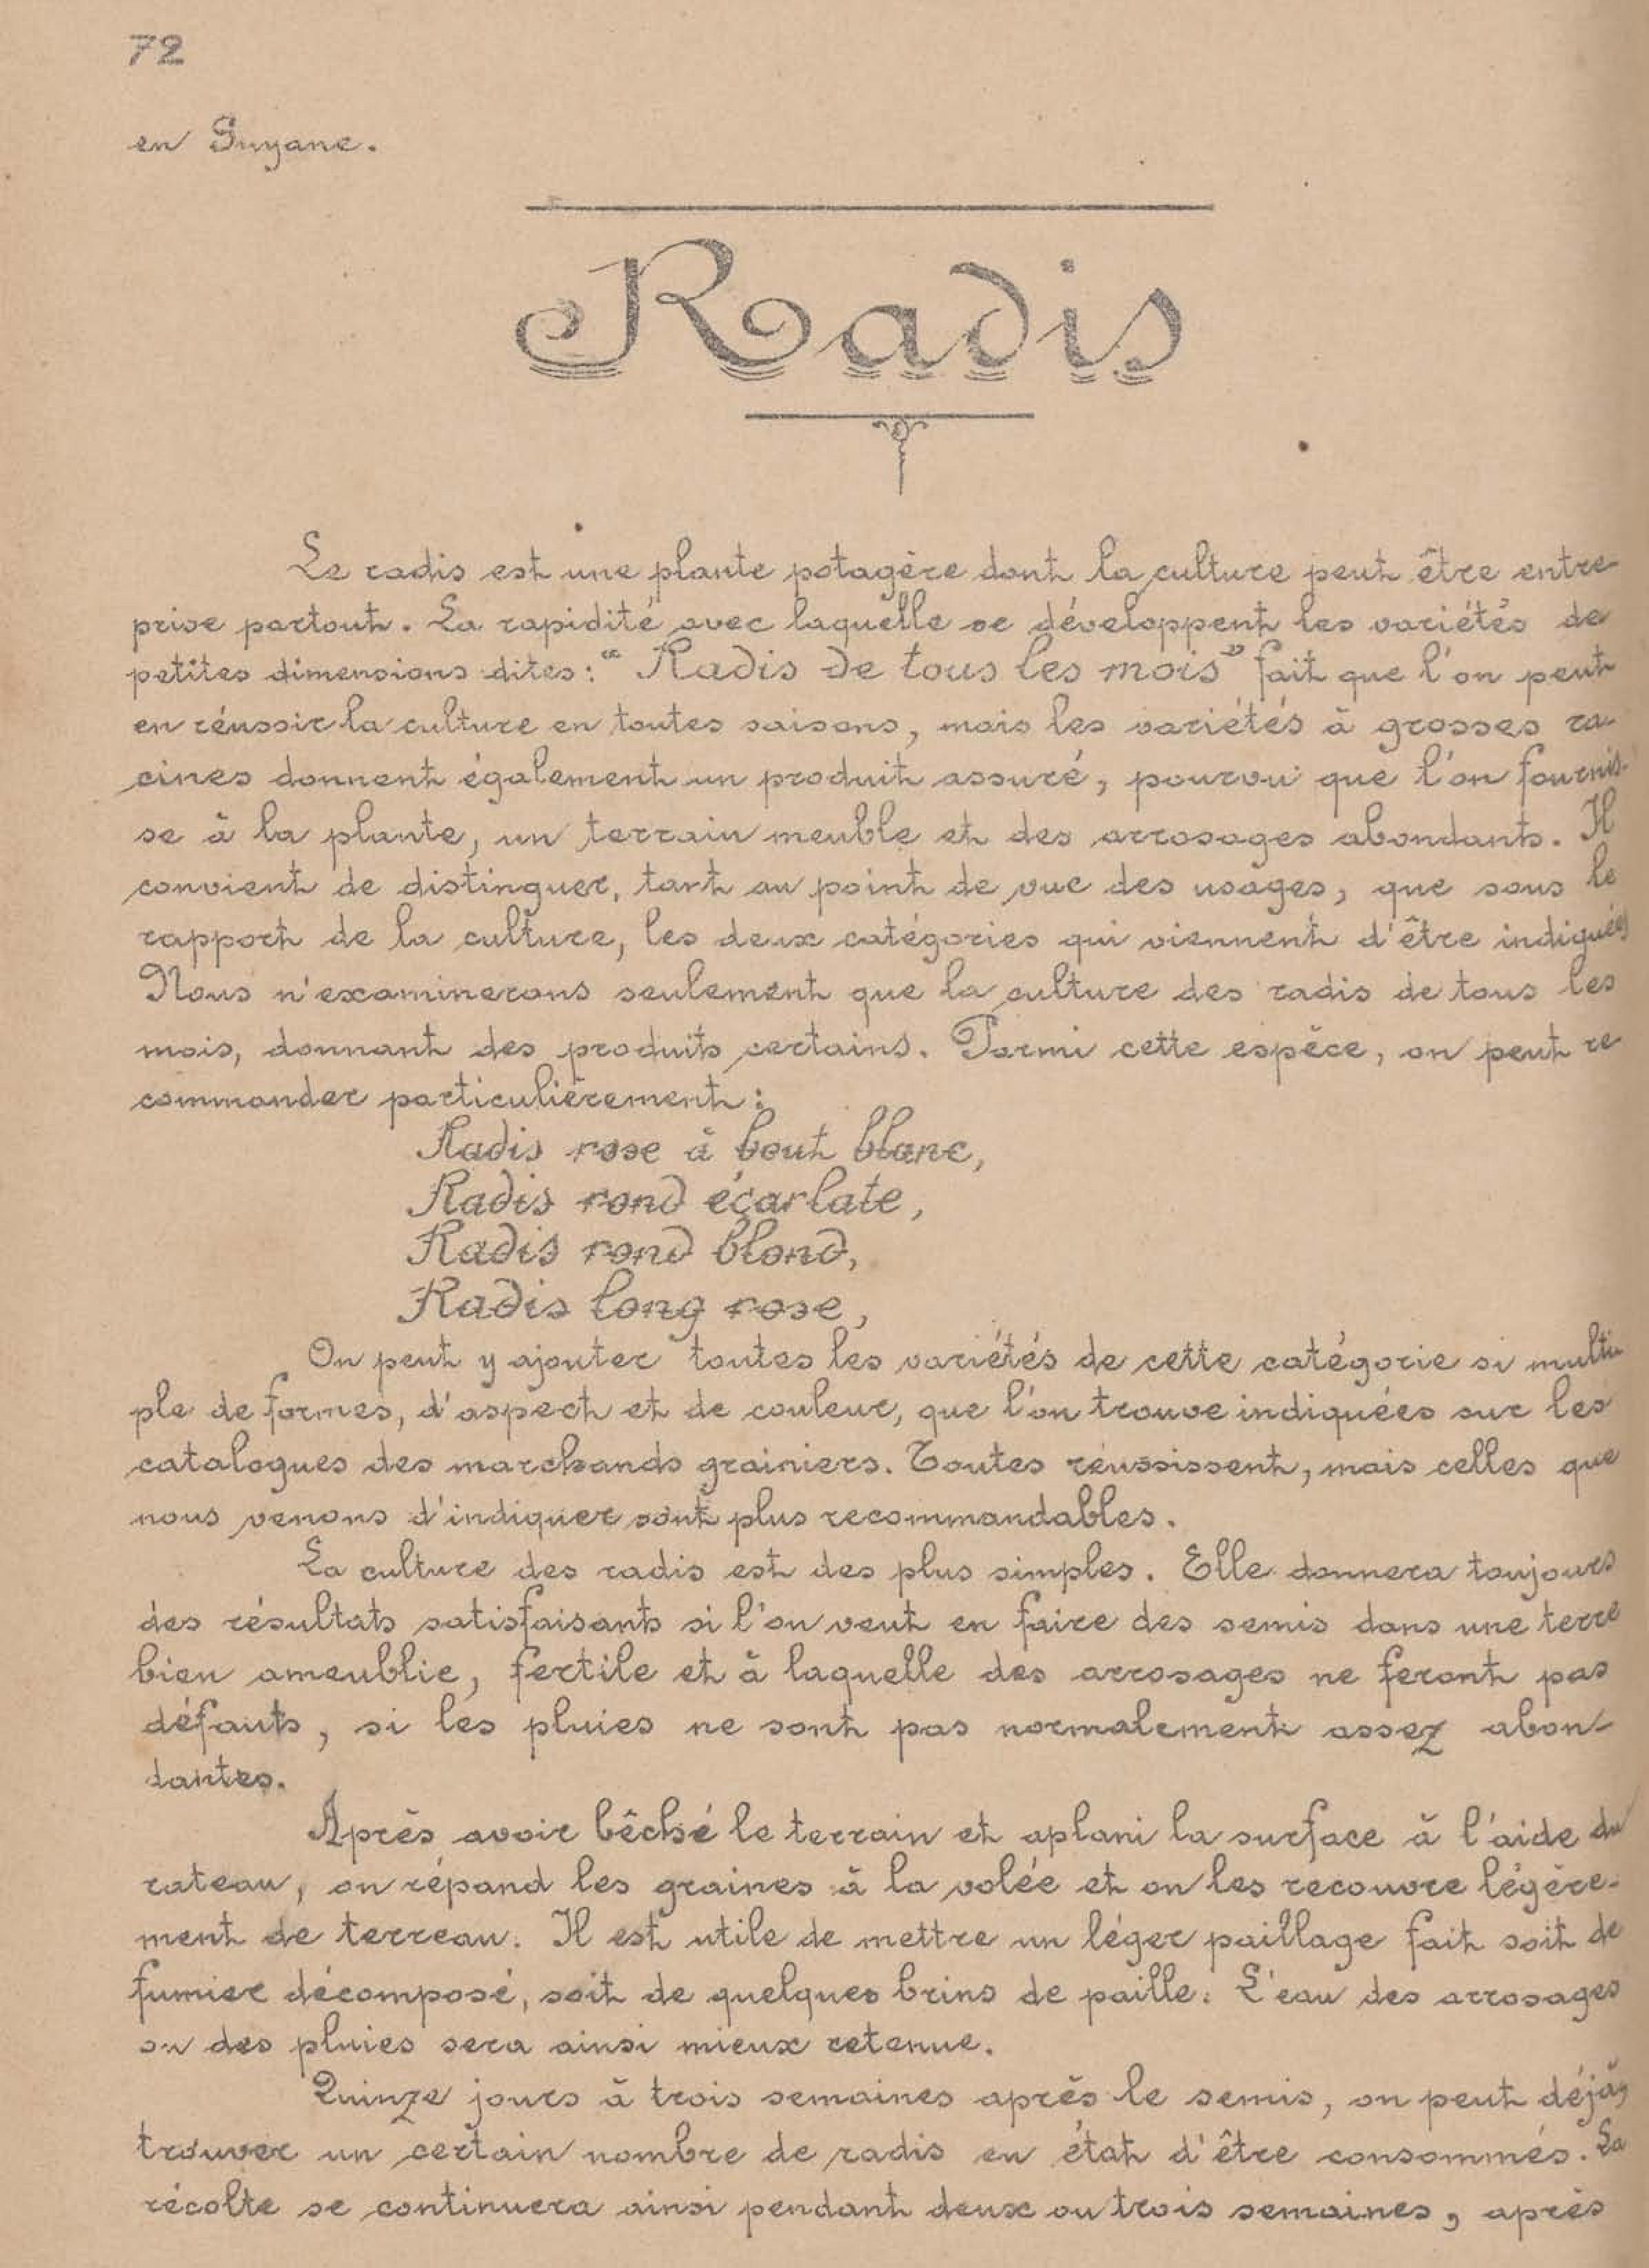 72
en Guyane.
Radis
Le radis est une plante potagère dont la culture peut être entre
prise partout. La rapidité avec laquelle se développent les variétés de
petites dimensions dites: "Radis de tous les mois" fait que l'on peut
en réussir la culture en toutes saisons, mais les variétés à grosses ra-
cines donnent également un produit assuré, pourvu que l'on fournis-
se à la plante, un terrain meuble et des arrosages abondants. Il
convient de distinguer, tant au point de vue des usages, que sous le
rapport de la culture, les deux catégories qui viennent d'être indiquées
Nous n'examinerons seulement que la culture des radis de tous les
mois, donnant des produits certains. Parmi cette espèce, on peut re
commander particulièrement:
Radis rose à bout blanc,
Radis rond écarlate,
Radis rond blond,
Radis long rose,
On peut y ajouter toutes les variétés de cette catégorie si multi
ple de formes, d'aspect et de couleur, que l'on trouve indiquées sur les
catalogues des marchands grainiers. Toutes réussissent, mais celles que
nous venons d'indiquer sont plus recommandables.
La culture des radis est des plus simples. Elle donnera toujours
des résultats satisfaisants si l'on veut en faire des semis dans une terre
bien ameublie, fertile et à laquelle des arrosages ne feront pas
défauts, si les pluies ne sont pas normalement assez abon-
dantes.
Après avoir bêché le terrain et aplani la surface à l'aide du
rateau, on répand les graines à la volée et on les recouvre légère-
ment de terreau. Il est utile de mettre un léger paillage fait soit de
fumier décomposé, soit de quelques brins de paille. L'eau des arrosages
ou des pluies sera ainsi mieux retenue.
Quinze jours à trois semaines après le semis, on peut déjà,
trouver un certain nombre de radis en état d'être consommés. La
récolte se continuera ainsi pendant deux ou trois semaines, après